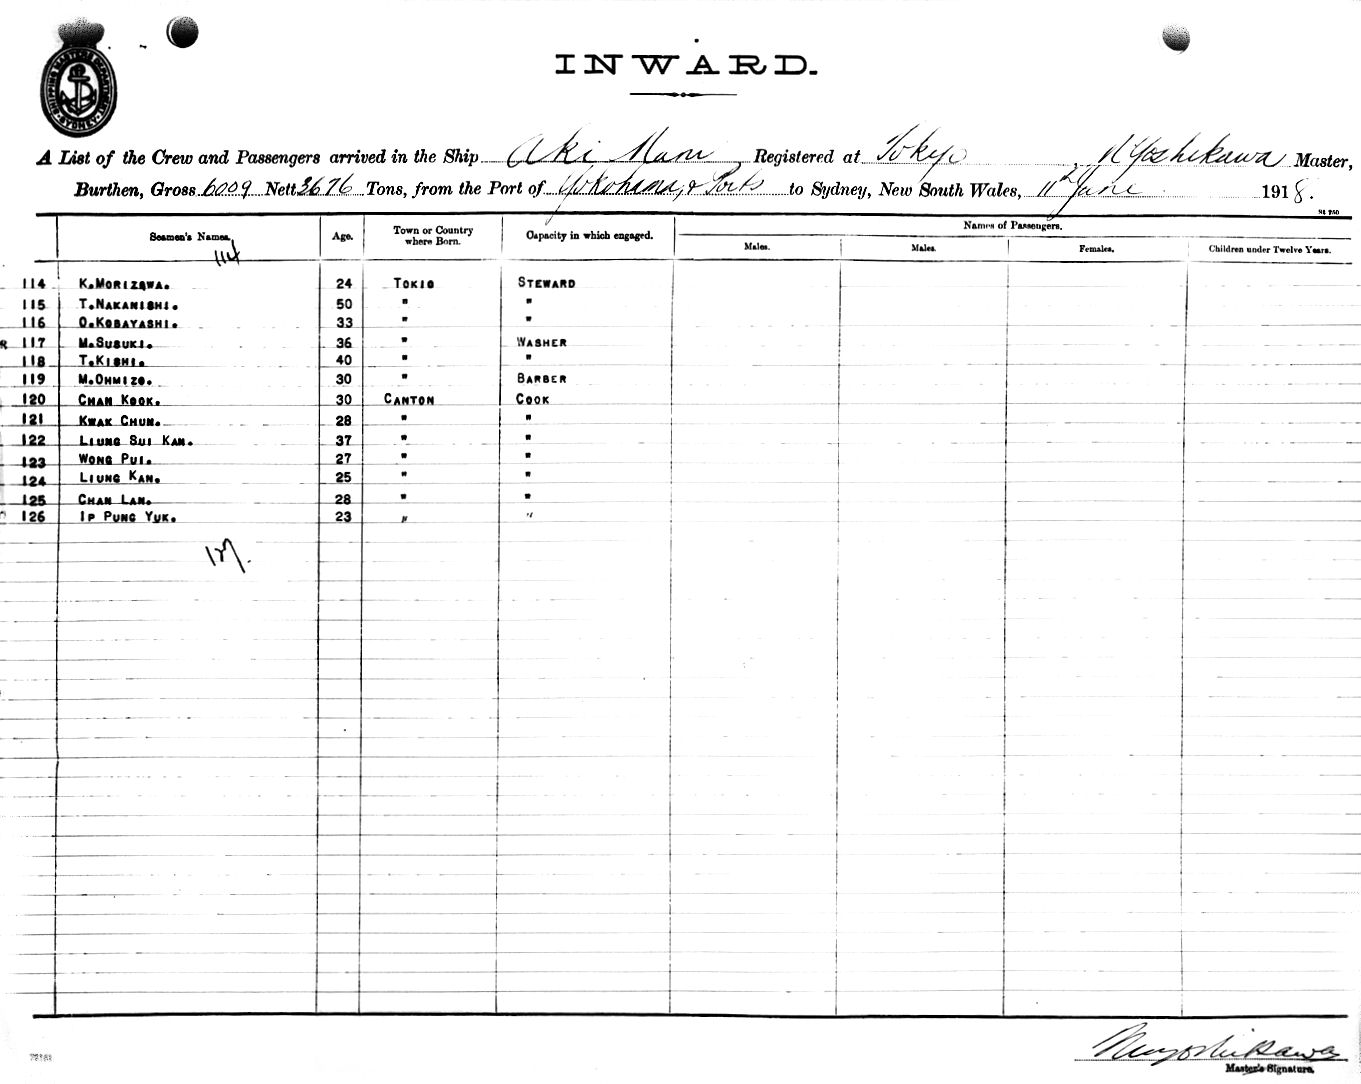 SHIPPING MASTER'S DEPARTMENT SYDNEY
INWARD.
A List of the Crew and Passengers arrived in the Ship Aki Maru, Registered at Tokyo, N Yoshikawa Master,
Burthen, Gross 6009 Nett 3676 Tons, from the Port of Yokohama, & Ports to Sydney, New South Wales, 11th June 1918.
Names of Passengers.
Seamen's Names. Age. Town or Country where Born. Capacity in which engaged. Males. Males. Females. Children under Twelve Years.
114
114 K.MORIZAWA. 24 TOKIO STEWARD
115 T.NAKANISHI. 50 " "
116 O.KOBAYASHI. 33 " "
117 M.SUSUKI. 36 " WASHER
118 T.KISHI. 40 " "
119 M.OHMIZO. 30 " BARBER
120 CHAN KOOK. 30 CANTON COOK
121 KWAK CHUN. 28 " "
122 LIUNG SUI KAN. 37 " "
123 WONG PUI. 27 " "
124 LIUNG KAN. 25 " "
125 CHAN LAN. 28 " "
126 IP PUNG YUK. 23 " "
127.
N Yoshikawa
Master's Signature.